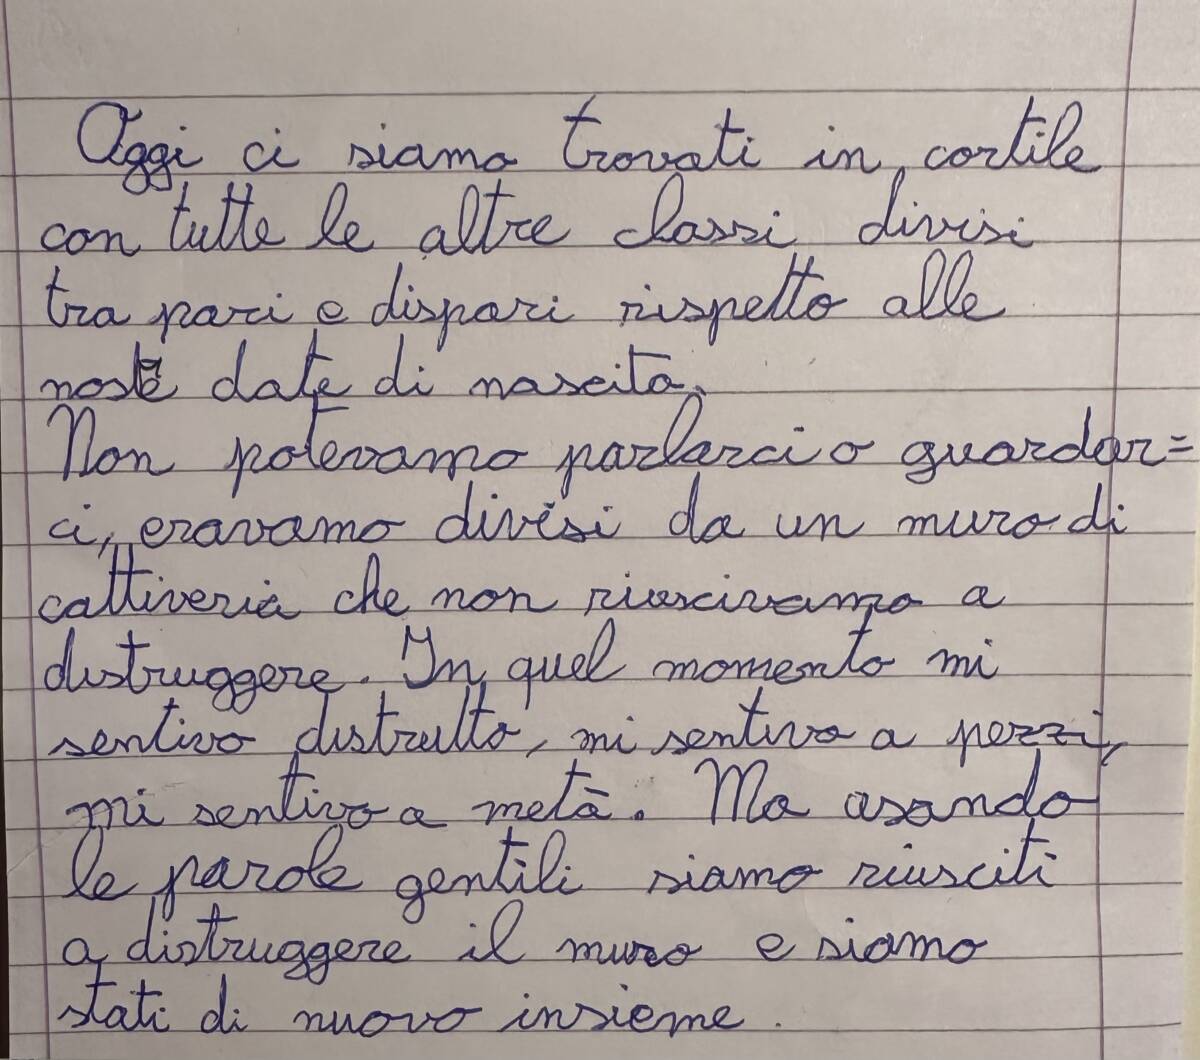 Oggi ci siamo trovati in cortile
con tutte le altre classi divisi
tra pari e dispari rispetto alle
date di nascita.
Non potevamo parlarci o guardar=
ci, eravamo divisi da un muro di
cattiveria che non riuscivamo a
distruggere. In quel momento mi
sentivo distrutto, mi sentivo a pezzi,
mi sentivo a metà. Ma usando
le parole gentili siamo riusciti
a distruggere il muro e siamo
stati di nuovo insieme.